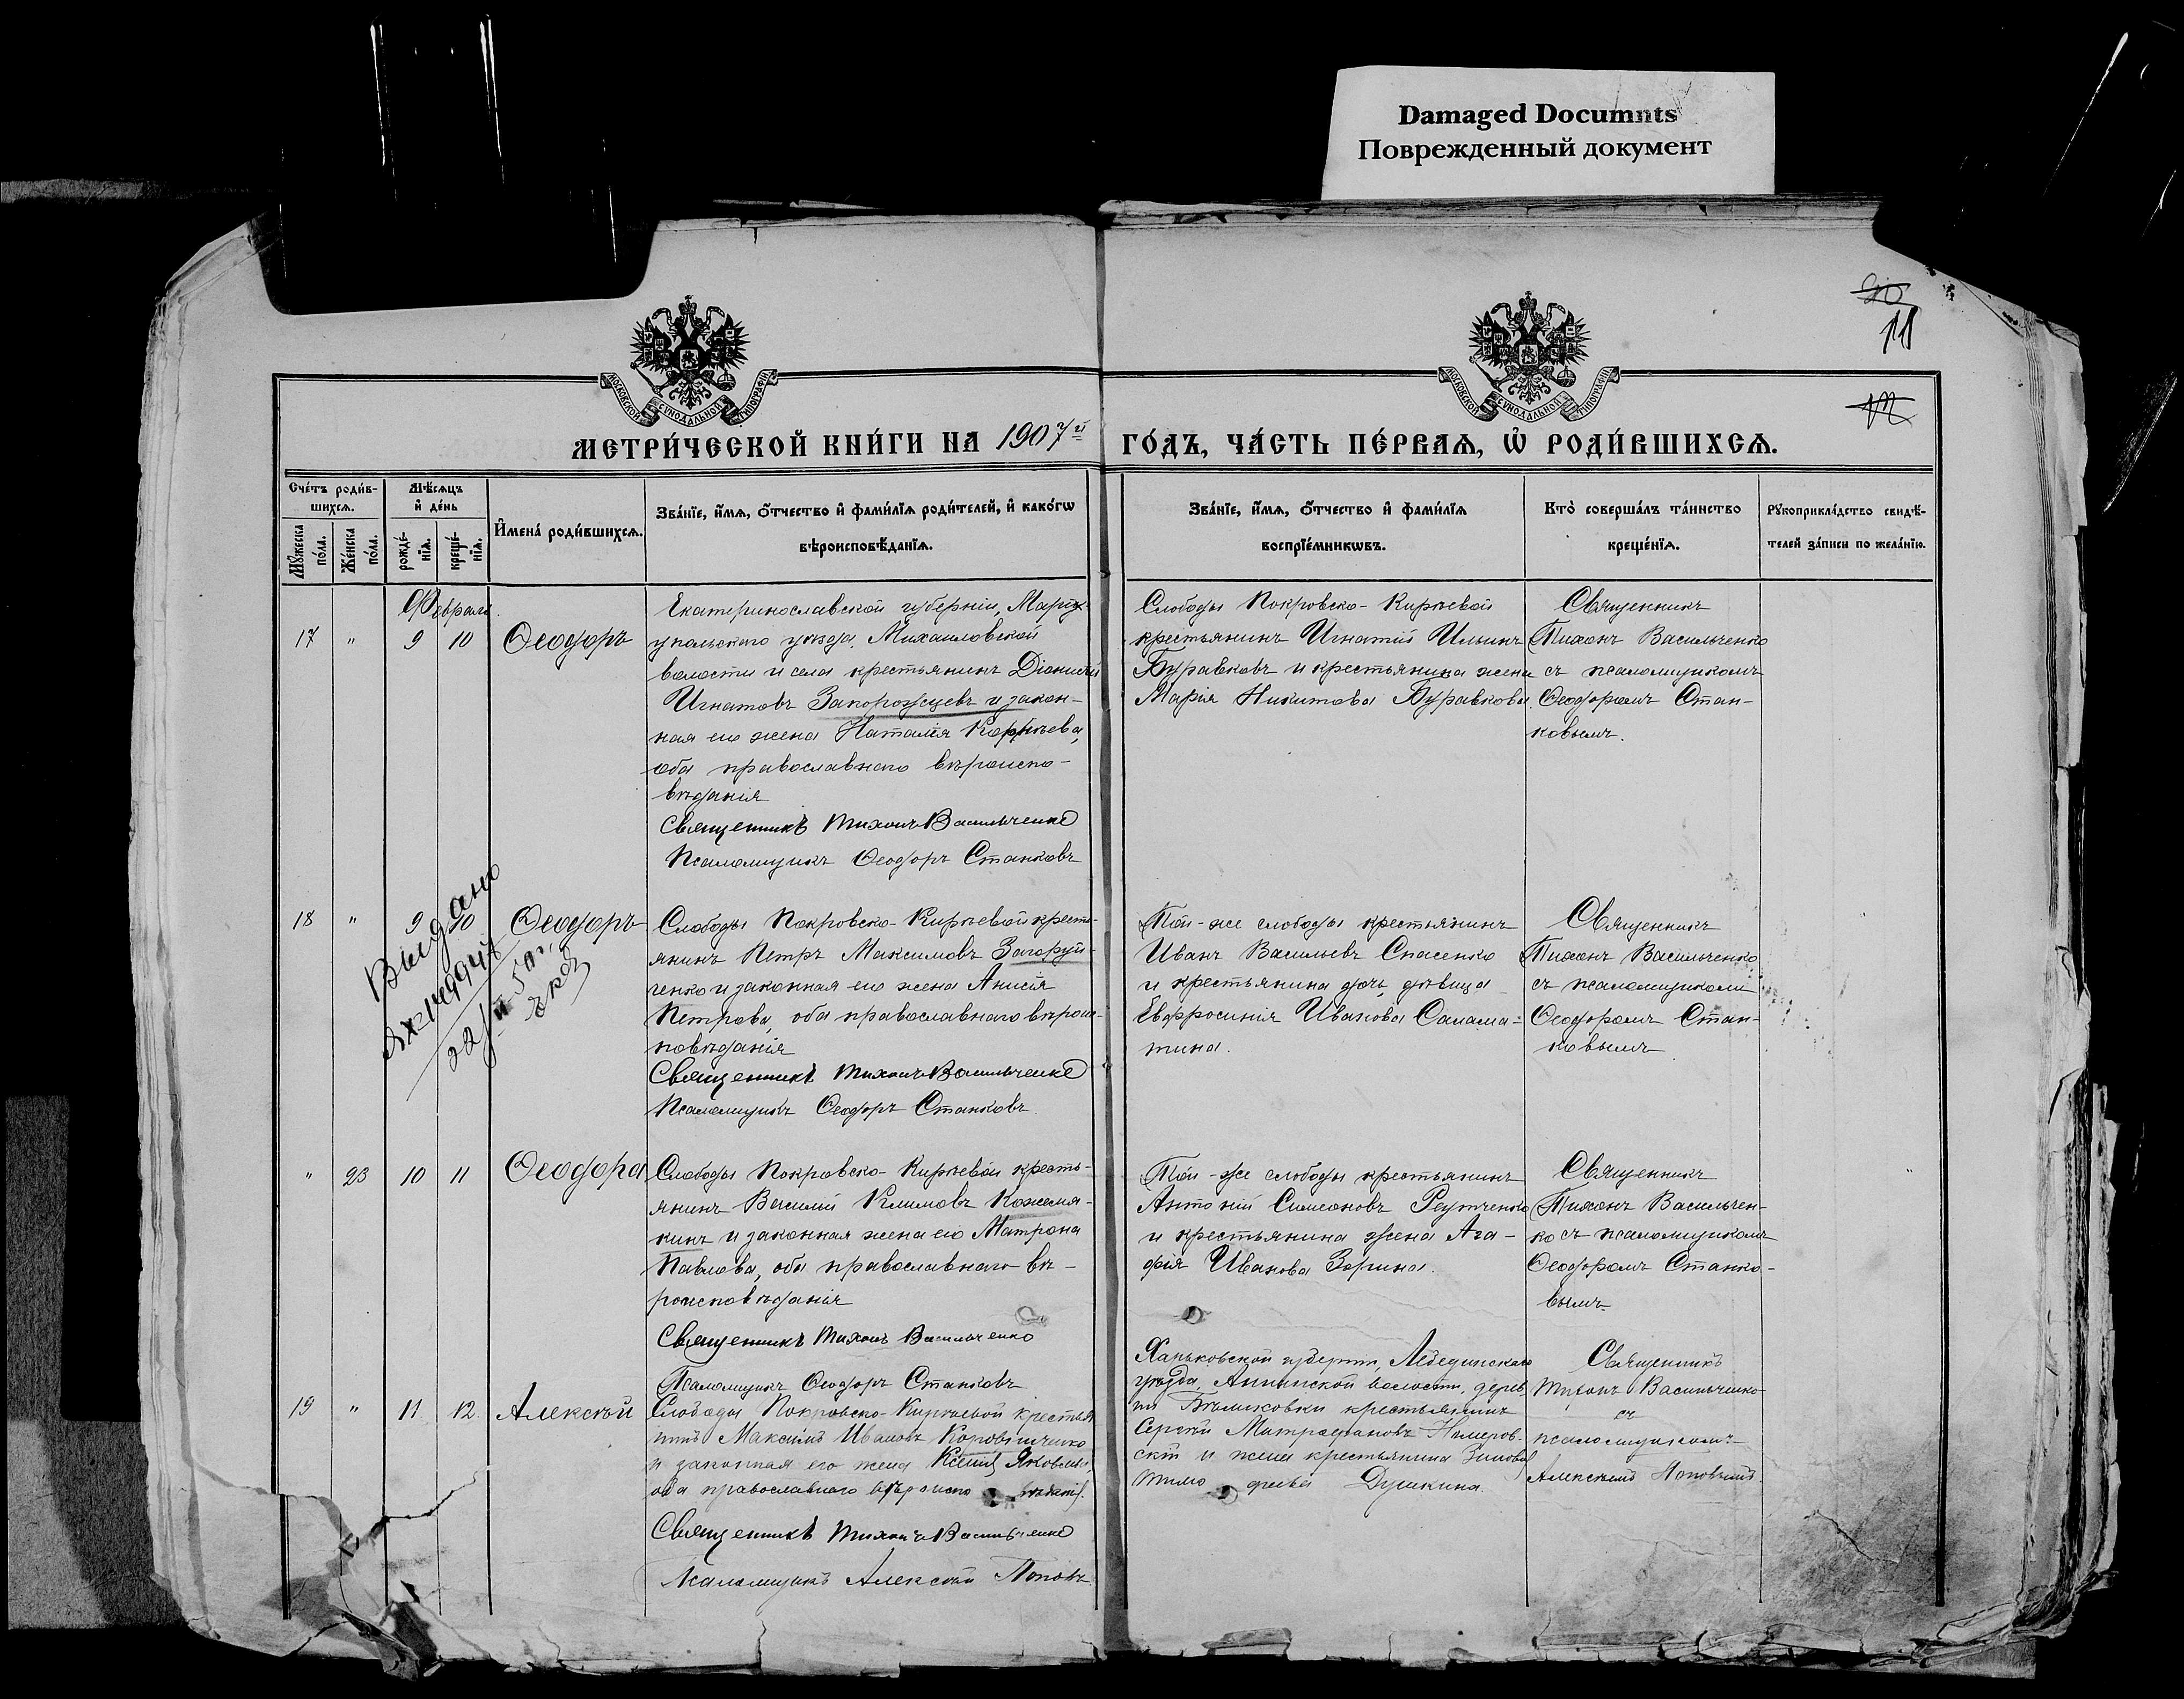 Damaged Documnts
Поврежденный документ
20
11
МОСКОВСКОЙ СУНОДАЛЬНОЙ ТИПОГРАФІИ
МОСКОВСКОЙ СУНОДАЛЬНОЙ ТИПОГРАФІИ
МЕТРИ́ЧЕСКОЙ КНИ́ГИ НА 1907й ГО́ДЪ, ЧА́СТЬ ПЕ́РВАѦ, Ѡ҆ РОДИ́ВШИХСѦ.
Сче́тъ роди́в-
шихсѧ.
Мѣ́сѧцъ
и҆ де́нь
Мꙋ́жеска
по́ла.
Же́нска
по́ла.
рожде́-
нїѧ.
креще́-
нїѧ.
И҆мена̀ роди́вшихсѧ.
Зва́нїе, и҆́мѧ, о҆́тчество и҆ фами́лїѧ роди́телей, и҆ како́гѡ
вѣроисповѣ́данїѧ.
Зва́нїе, и҆́мѧ, о҆́тчество и҆ фами́лїѧ
воспрїе́мникѡвъ.
Кто̀ соверша́лъ та́инство
креще́нїѧ.
Рꙋкоприкла́дство свидѣ́-
телей за́писи по жела́нїю.
Февраля.
17 " 9 10 Ѳеодоръ
Екатеринославской губерніи, Маріу-
польского уѣзда, Михайловской
волости и села крестьянинъ Діонисій
Игнатовъ Запорожцевъ и закон-
ная его жена Наталія Корнѣева,
оба православнаго вѣроиспо-
вѣданія
Священникъ Тихонъ Васильченко
Псаломщикъ Ѳеодоръ Станковъ
Слободы Покровско-Кирѣевой
крестьянинъ Игнатій Ильинъ
Буравковъ и крестьянина жена
Марія Никитова Буравкова.
Священникъ
Тихонъ Васильченко
съ псаломщикомъ
Ѳеодоромъ Стан-
ковымъ.
18 " 9 10 Ѳеодоръ
Выдано
Слободы Покровско-Кирѣевой кресть-
янинъ Петръ Максимовъ Загоруй-
ченко и законная его жена Анисія
Петрова, оба православнаго вѣроис-
повѣданія
Священникъ Тихонъ Васильченко
Псаломщикъ Ѳеодоръ Станковъ.
Той-же слободы крестьянинъ
Иванъ Васильевъ Спасенко
и крестьянина дочь, дѣвица
Евфросинія Иванова Салама-
тина.
Священникъ
Тихонъ Васильченко
съ псаломщикомъ
Ѳеодоромъ Стан-
ковымъ
" 23 10 11 Ѳеодора
Слободы Покровско-Кирѣевой кресть-
янинъ Василій Климовъ Кожемя-
кинъ и законная жена его Матрона
Павлова, оба православнаго вѣ-
роисповѣданія
Священникъ Тихонъ Васильченко
Псаломщикъ Ѳеодоръ Станковъ
Той-же слободы крестьянинъ
Антоній Симеоновъ Реутченко
и крестьянина жена Ага-
фія Иванова Зорина.
Священникъ
Тихонъ Васильчен-
ко съ псаломщикомъ
Ѳеодоромъ Станко-
вымъ.
19 " 11 12. Алексѣй
Слободы Покровско-Кирѣевой крестья
нинъ Максимъ Ивановъ
и законная его жена Ксенія Яковлева,
оба православнаго вѣроиспо
Священникъ Тихонъ Васильченко
Псаломщикъ Алексѣй Поповъ
Харьковской губерніи, Лебединскаго
уѣзда, Аннинской волости, дерев
ни Бѣликовки крестьянинъ
Сергѣй Митрофановъ Немеров-
скій и жена крестьянина Зиновія
Тимофеева Душкина.
Священникъ
Тихонъ Васильченко
съ
псаломщикомъ
Алексѣемъ Поповымъ